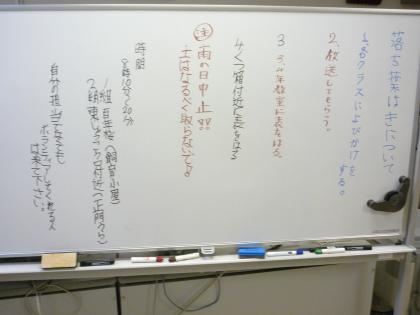 落ち葉はきについて
1、各クラスによびかけをする。
2、放送してもらう。
3 3、4年教室に表をはる。
4、くつ箱付近に表をはる
注 雨の日中止!!
土はなるべく取らないでネ!
時間
8時10分〜20分
1組 百年桜(飼育小屋)
2組 東しょうこう口付近(正門うら)
自分の担当でなくても
ボランティアしてくれる人
は来て下さい。